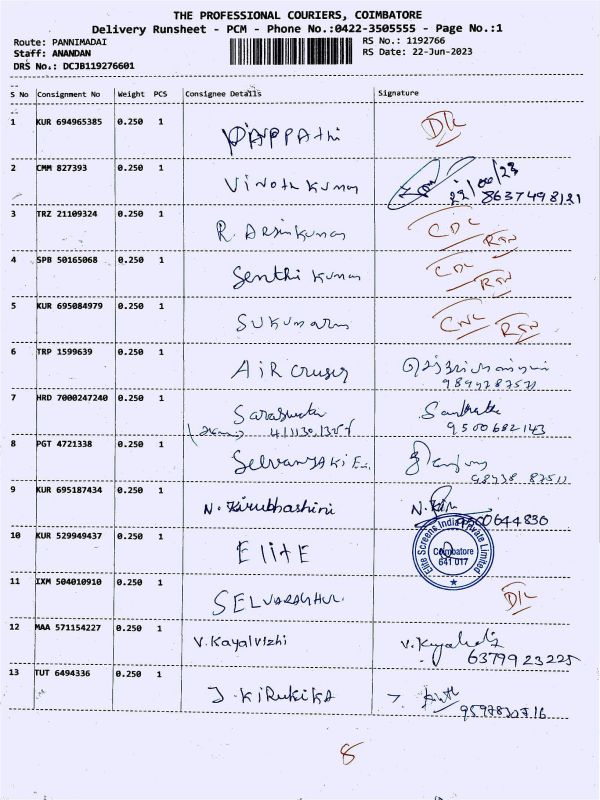 THE PROFESSIONAL COURIERS, COIMBATORE
Delivery Runsheet - PCM - Phone No.:0422-3505555 - Page No.:1
Route: PANNIMADAI RS No.: 1192766
Staff: ANANDAN RS Date: 22-Jun-2023
DRS No.: DCJB119276601
S No Consignment No Weight PCS Consignee Details Signature
1 KUR 694965385 0.250 1
PAPPAthi D/L
2 CMM 827393 0.250 1
Vinoth Kumar 8637498121
3 TRZ 21109324 0.250 1
R. Arunkumar CDL RTN
4 SPB 50165068 0.250 1
Senthi kumar CDL RTN
5 KUR 695084979 0.250 1
Sukumaran CNL RTN
6 TRP 1599639 0.250 1
AiR Cruser
7 HRD 7000247240 0.250 1
9500682143
8 PGT 4721338 0.250 1
9 KUR 695187434 0.250 1
N. Kirubhashini 9500644830
10 KUR 529949437 0.250 1
EliTE Elite Screens India Private Limited
Coimbatore
641 017
11 IXM 504010910 0.250 1
D/L
12 MAA 571154227 0.250 1
V. Kayalvizhi 6379923225
13 TUT 6494336 0.250 1
J. KiRuKiKA
8